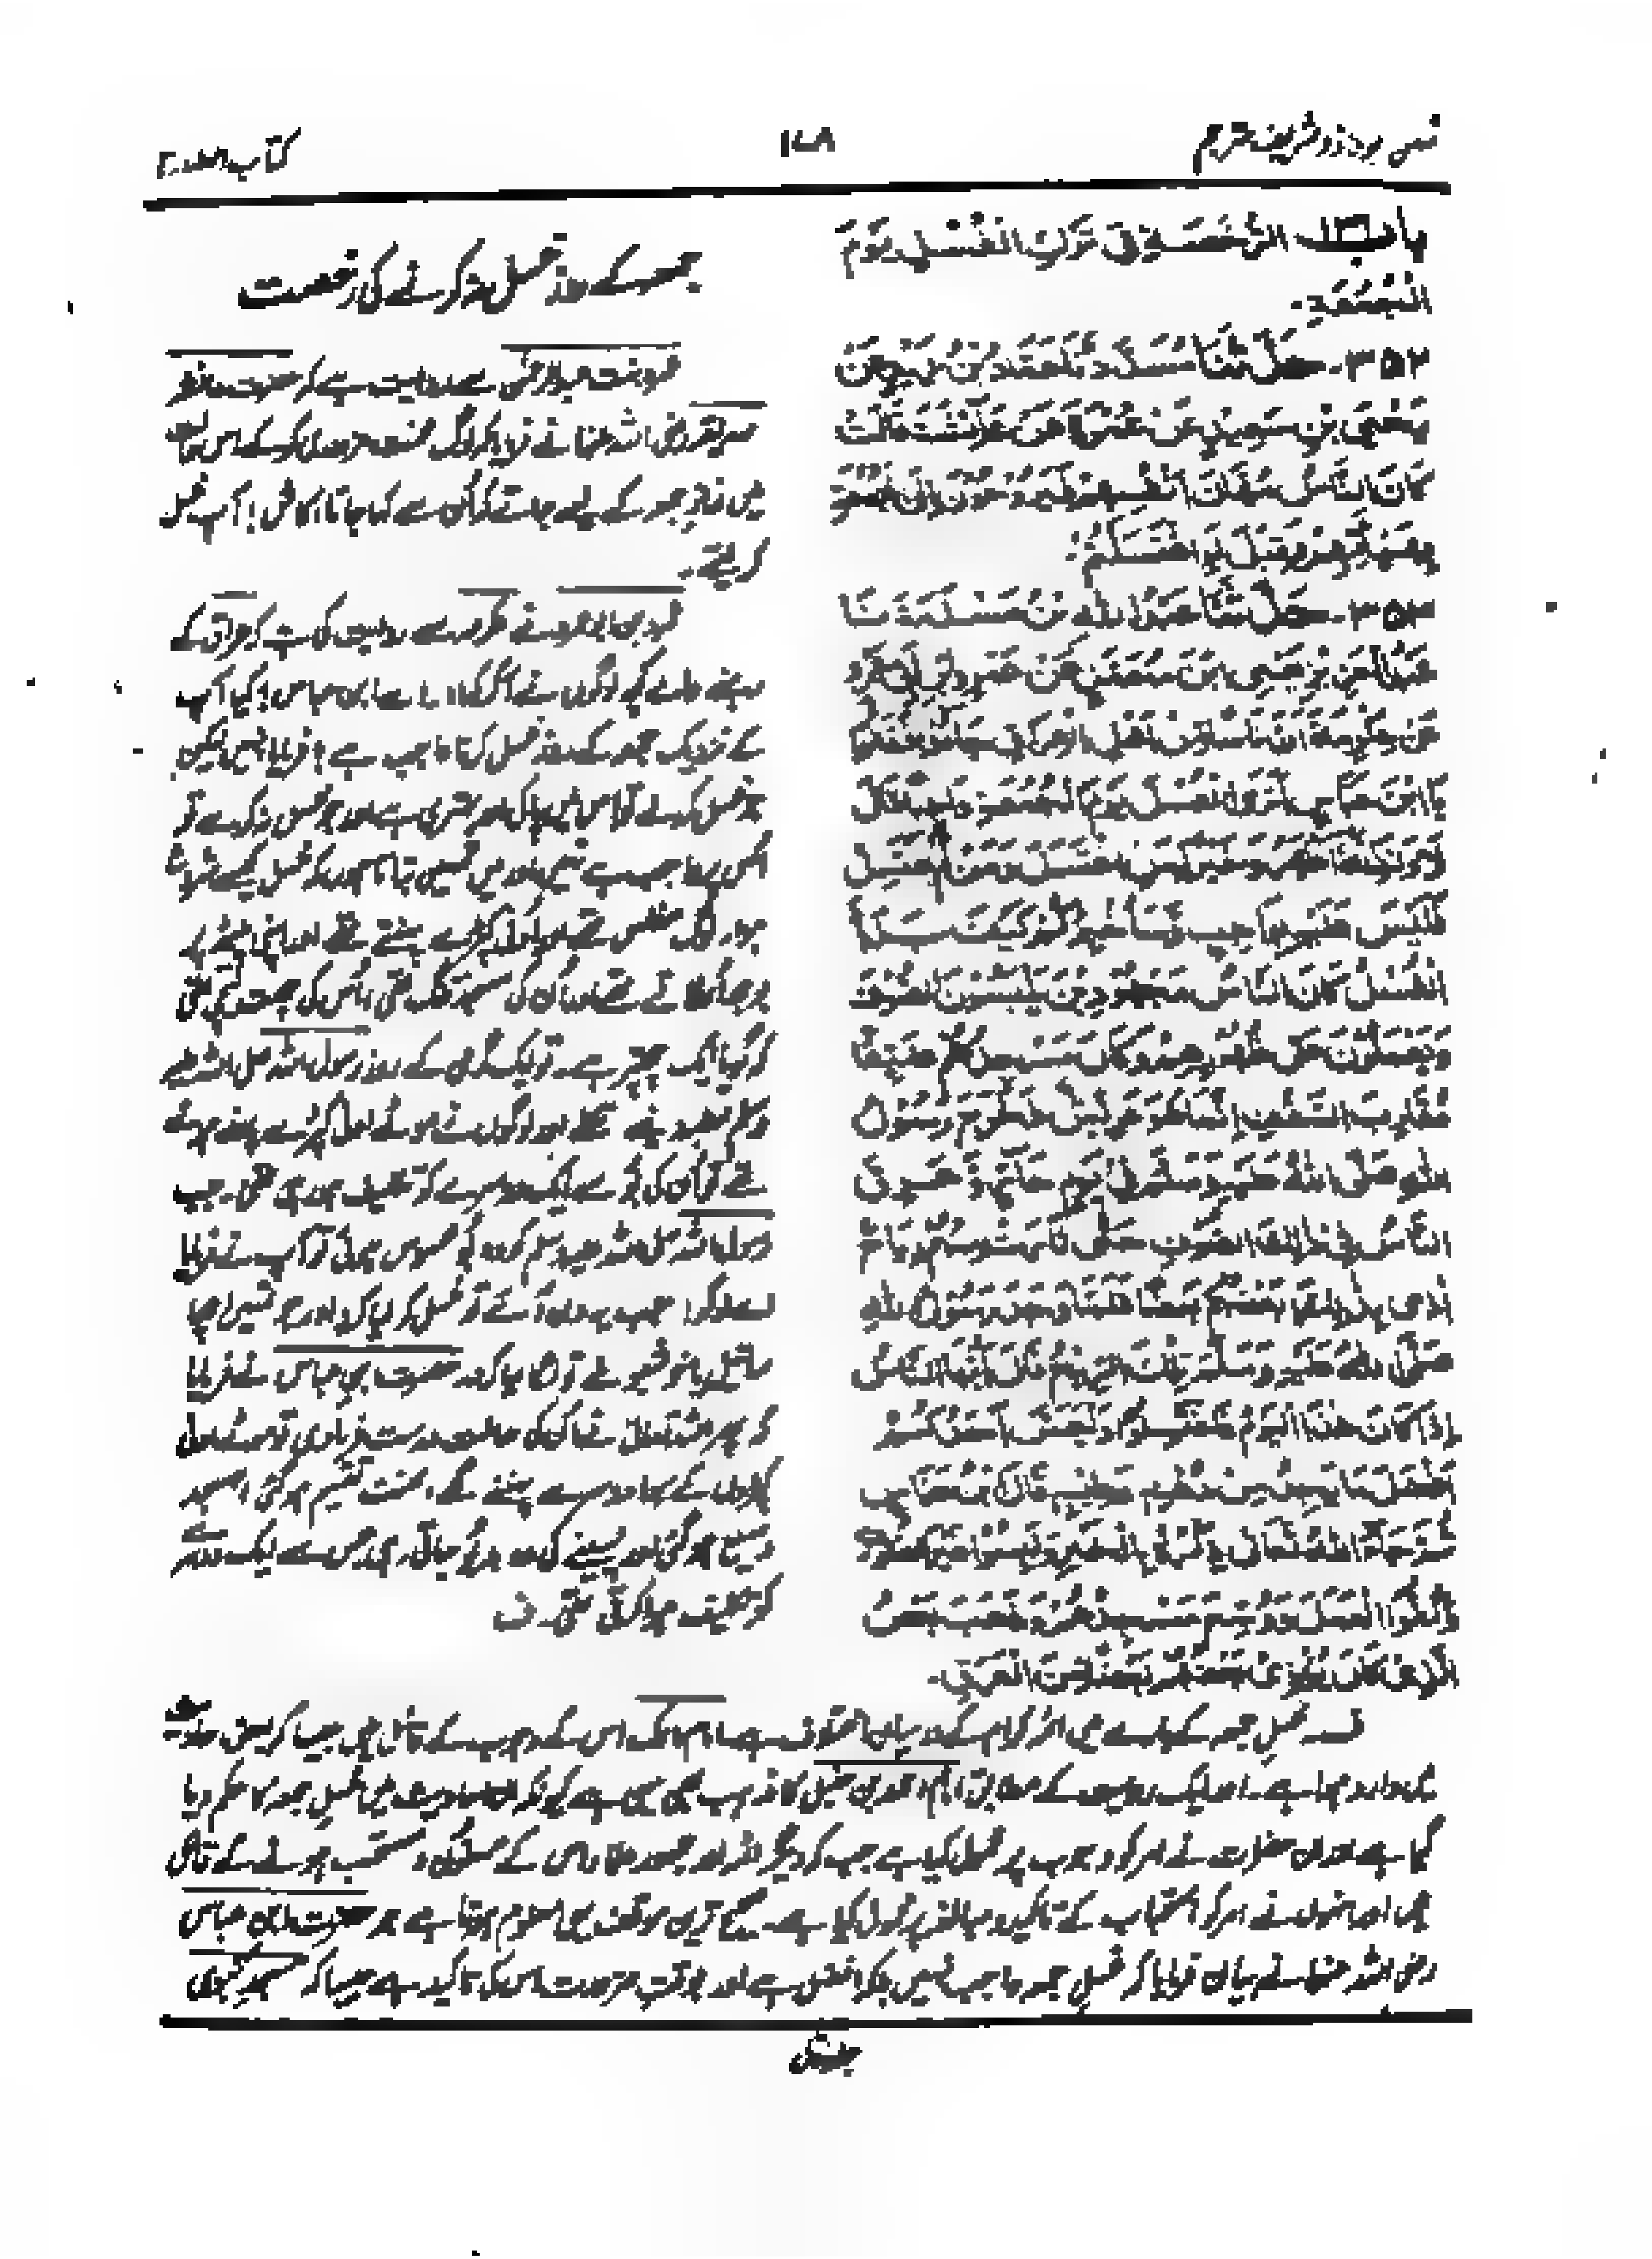 سنن ابوداؤد شریف مترجم
۱۷۸
کتاب الطہارۃ
باب الرخصة فی ترک الغسل یوم
الجمعة۔
۳۵۲۔ حدثنا مسدد نا حماد بن زید عن
یحیی بن سعید عن عمرة عن عائشة قالت
کان الناس مهان انفسهم فیروحون الی الجمعة
بهیئتهم فقیل لهم لو اغتسلتم۔
۳۵۳۔ حدثنا عبد الله بن مسلمة نا
عبد العزیز یعنی ابن محمد عن عمرو بن ابی عمرو
عن عکرمة ان ناسا من اهل العراق جاءوا فقالوا
یا ابن عباس اتری الغسل یوم الجمعة واجبا قال
لا ولکنه اطهر وخیر لمن اغتسل ومن لم یغتسل
فلیس علیه بواجب وساخبرکم کیف بدأ
الغسل کان الناس مجهودین یلبسون الصوف
ویعملون علی ظهورهم وکان مسجدهم ضیقا
مقارب السقف انما هو عریش فخرج رسول
الله صلی الله علیه وسلم فی یوم حار وعرق
الناس فی ذلک الصوف حتی ثارت منهم ریاح
اذی بذلک بعضهم بعضا فلما وجد رسول الله
صلی الله علیه وسلم تلک الریح قال ایها الناس
اذا کان هذا الیوم فاغتسلوا ولیمس احدکم
افضل ما یجد من دهنه وطیبه قال ابن عباس
ثم جاء الله تعالی ذکره بالخیر ولبسوا غیر الصوف
وکفوا العمل ووسع مسجدهم وذهب بعض
الذی کان یؤذی بعضهم بعضا من العرق۔
جمعہ کے روز غسل نہ کرنے کی رخصت
عمرہ بنت عبدالرحمٰن سے روایت ہے کہ حضرت عائشہ
صدیقہ رضی اللہ عنہا نے فرمایا کہ لوگ محنت مزدوری کر کے اسی حالت
میں نماز جمعہ کے لیے چلے جاتے تو ان سے کہا جاتا، کاش! آپ غسل
کر لیتے۔
عمرو بن ابو عمرو نے عکرمہ سے روایت کی ہے کہ عراق کے
رہنے والے کچھ لوگوں نے آ کر کہا: اے ابن عباس! کیا آپ
کے نزدیک جمعہ کے روز غسل کرنا واجب ہے؟ فرمایا نہیں لیکن
جو غسل کرے تو اس میں پاکی اور بہتری ہے اور جو غسل نہ کرے تو
اس پر واجب نہیں اور میں تمہیں بتاتا ہوں کہ غسل کیسے شروع
ہوا۔ لوگ مفلس تھے، اونی کپڑے پہنتے تھے اور اپنی پیٹھ پر
بوجھ اٹھاتے تھے اور ان کی مسجد تنگ تھی، اس کی چھت نیچی تھی
گویا ایک چھپر ہے۔ تو ایک گرمی کے روز رسول اللہ صلی اللہ علیہ
وسلم نکلے اور لوگوں نے اونی کپڑے پہنے ہوئے
تھے تو ان کی بو سے ایک دوسرے کو تکلیف ہو رہی تھی۔ جب
رسول اللہ صلی اللہ علیہ وسلم کو بو محسوس ہوئی تو آپ نے فرمایا
اے لوگو! جب یہ دن آئے تو غسل کر لیا کرو اور جو تمہیں اچھا
تیل یا خوشبو ملے تو لگا لیا کرو۔ حضرت ابن عباس نے فرمایا
کہ پھر اللہ تعالیٰ نے ان کی حالت درست فرما دی تو وہ اونی
کپڑوں کے سوا دوسرے پہننے لگے، محنت تقسیم ہو گئی، مسجد
وسیع ہو گئی اور پسینے کی وہ بو جاتی رہی جس سے ایک دوسرے
کو تکلیف ہوا کرتی تھی۔ ف
ف۔ غسل جمعہ کے بارے میں ائمہ کرام کے درمیان اختلاف ہے۔ امام مالک اس کے وجوب کے قائل ہیں جیسا کہ بعض احادیث
میں وارد ہوا ہے۔ اور ایک روایت کے مطابق امام احمد بن حنبل کا مذہب بھی یہی ہے کیونکہ ان احادیث میں غسل جمعہ کا حکم دیا
گیا ہے اور ان حضرات نے امر کو وجوب پر محمول کیا ہے جب کہ دیگر ائمہ اور جمہور علماء اس کے مسنون و مستحب ہونے کے قائل
ہیں اور انہوں نے امر کو استحباب کے تاکید و مبالغہ پر محمول کیا ہے۔ صحیح ترین موقف یہی معلوم ہوتا ہے جو حضرت ابن عباس
رضی اللہ عنہما نے بیان فرمایا کہ غسل جمعہ واجب نہیں بلکہ افضل ہے اور بوقت ضرورت اس کی تاکید ہے جیسا کہ مسجد نبوی
جلد اول